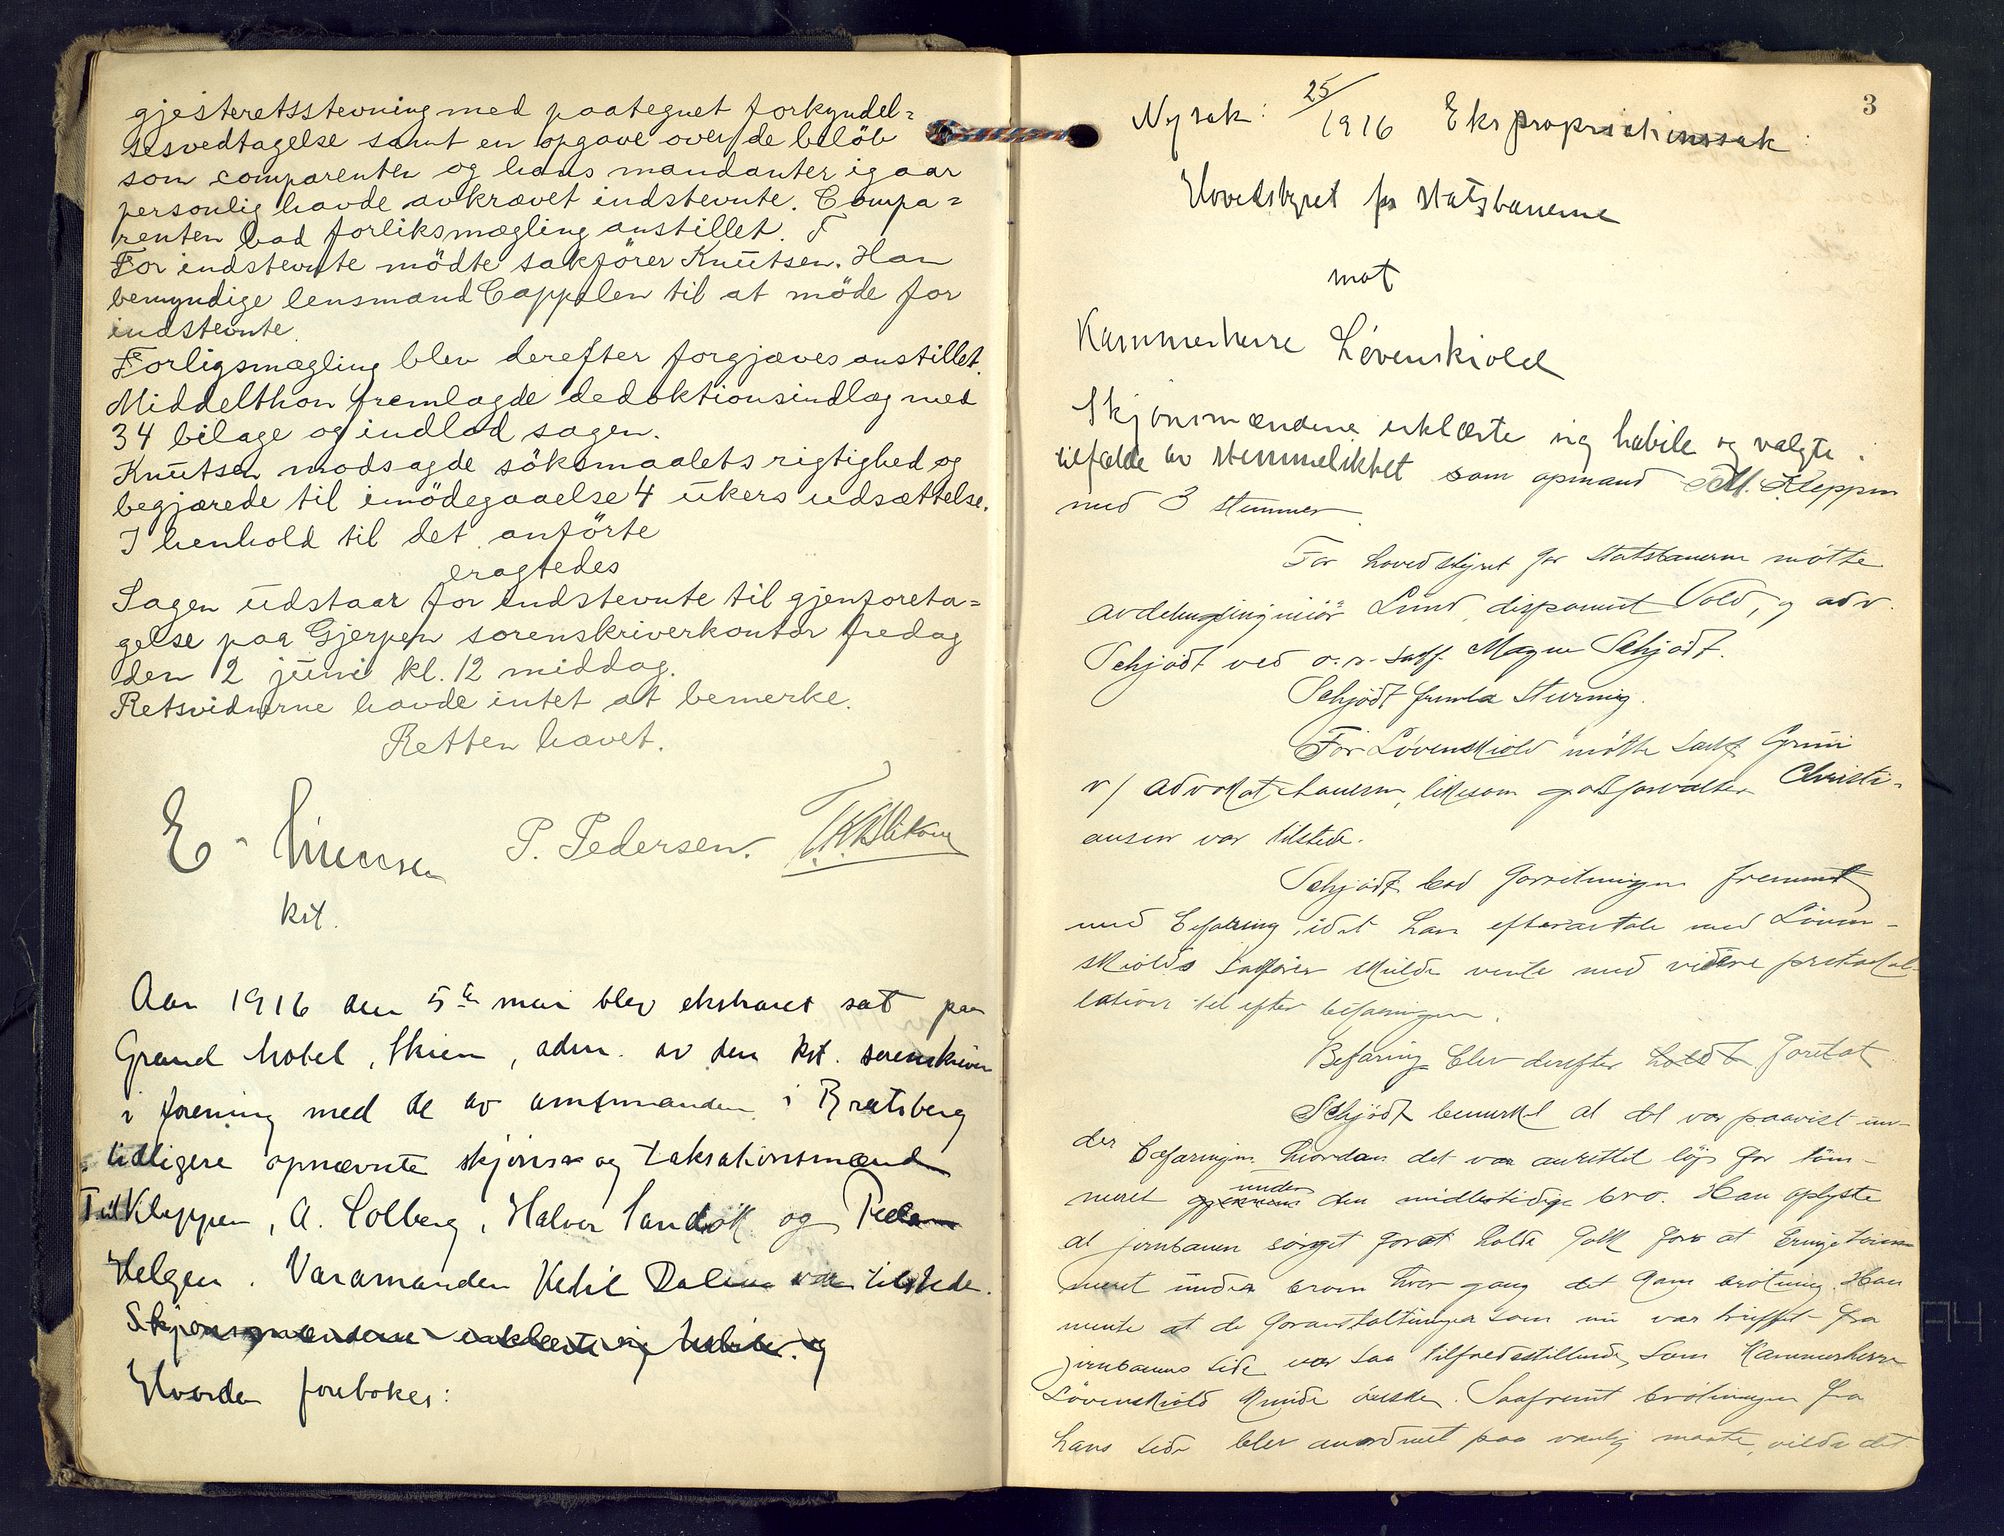 gjesteretsstevning med paategnet forkyndel=
sesvedtagelse samt en opgave over de beløb
som comparenten og hans mandanter igaar
personlig havde avkrævet indstevnte. Compa=
renten bad forliksmægling anstillet.
For indstevnte mödte sakförer Knutsen. Han
bemyndige lensmand Cappelen til at möde for
indstevnte.
Forligsmægling blev derefter forgjæves anstillet.
Middelthon fremlagde deduktionsindlæg med
34 bilage og indlod sagen.
Knutsen modsagde söksmaalets rigtighed og
begjærede til imödegaaelse 4 ukers udsættelse.
I henhold til det anförte
eragtedes
Sagen udstaar for indstevnte til gjenforeta=
gelse paa Gjerpen sorenskriverkontor fredag
den 2 juni kl. 12 middag.
Retsvidnerne havde intet at bemerke.
Retten hævet.
E. P. Pedersen.
kst.
Aar 1916 den 5te mai blev ekstraret sat paa
Grand hotel, Skien, adm. av den kst. sorenskriver
i forening med de av amtmanden i Bratsberg
tidligere opnævnte skjøns- og taksationsmænd
Kleppen, A. Solberg, Halvor Sandök og Peder
Helgen. Varamanden Ketil Dalene var tilstede.
Skjønsmændene erklærte sig habile og
Hvorda foreb​okes:
3
Ny sak: 25/1916 Ekspropriationssak:
Hovedstyret for statsbanerne
mot
Kammerherre Løvenskiold
Skjønsmændene erklærte sig habile og valgte i
tilfælde av stemmelikhet som opmand Kleppen
med 3 stemmer.
For hovedstyret for Statsbanerne møtte
avdelingsingeniør Lund, disponent Vold, og adv.
Schjødt ved o.r. sakf. Magne Schjødt.
Schjødt fremla Stevning.
For Løvenskiold møtte sakf.
v/ advokat, likesom godsforvalter Christi-
ansen var tilstede.
Schjødt bad forretningen fremmet
med befaring, idet han efter avtale med Løven-
skiolds sakfører skulde vente med videre protokol-
lation til efter befaringen.
Befaring blev derefter holdt foretat.
Schjødt bemerket at det var paavist un-
der befaringen hvordan det var anrettet løp for töm-
meret gjennem under den midlertidige bro. Han oplyste
at jernbanen sørget for at holde folk for at bringe töm-
meret under broen hver gang det kom brötning. Han
mente at de foranstaltninger som nu var truffet fra
jernbanens side var saa tilfredsstillende som Kammerherre
Løvenskiold kunde ønske. Saafremt brötningen fra
hans side blev anordnet paa vanlig maate, vilde det